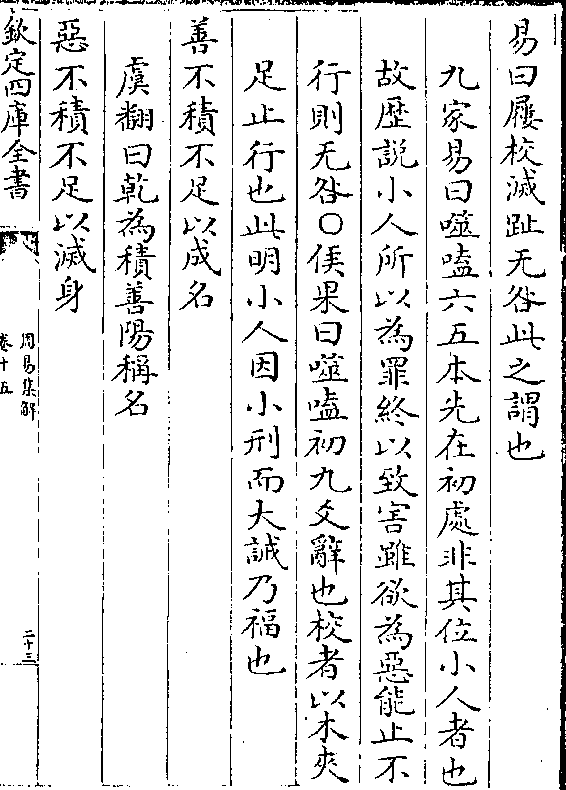 易曰屨校滅趾无咎此之謂也
九家易曰噬嗑六五本先在初處非其位小人者也
故歴説小人所以為罪終以致害雖欲為惡能止不
行則无咎○侯果曰噬嗑初九爻辭也校者以木夾
足止行也此明小人因小刑而大誡乃福也
善不積不足以成名
虞翻曰乾為積善陽稱名
惡不積不足以滅身
欽定四庫全書
周易集解
卷十五
二十三